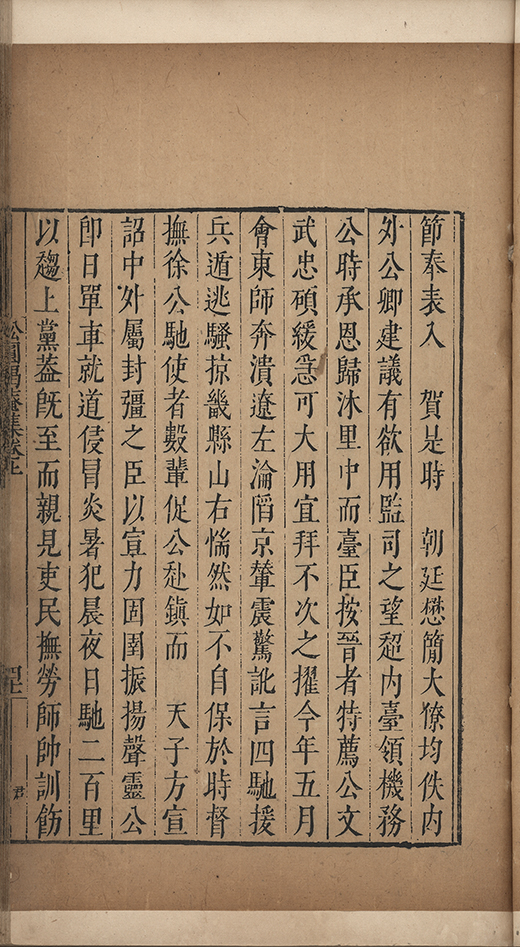 節奉表入　賀是時　朝廷懋簡大僚均佚內
外公卿建議有欲用監司之望超內臺領機務
公時承恩歸沐里中而臺臣按晉者特薦公文
武忠碩緩急可大用宜拜不次之擢今年五月
會東師奔潰遼左淪陷京輦震驚訛言四馳援
兵遁逃騷掠畿縣山右惴然如不自保於時督
撫徐公馳使者數輩促公赴鎮而　天子方宣
詔中外屬封疆之臣以宣力固圉振揚聲靈公
卽日單車就道侵冒炎暑犯晨夜日馳二百里
以趨上黨葢旣至而親見吏民撫勞師帥訓飭
松圓偈庵集卷上